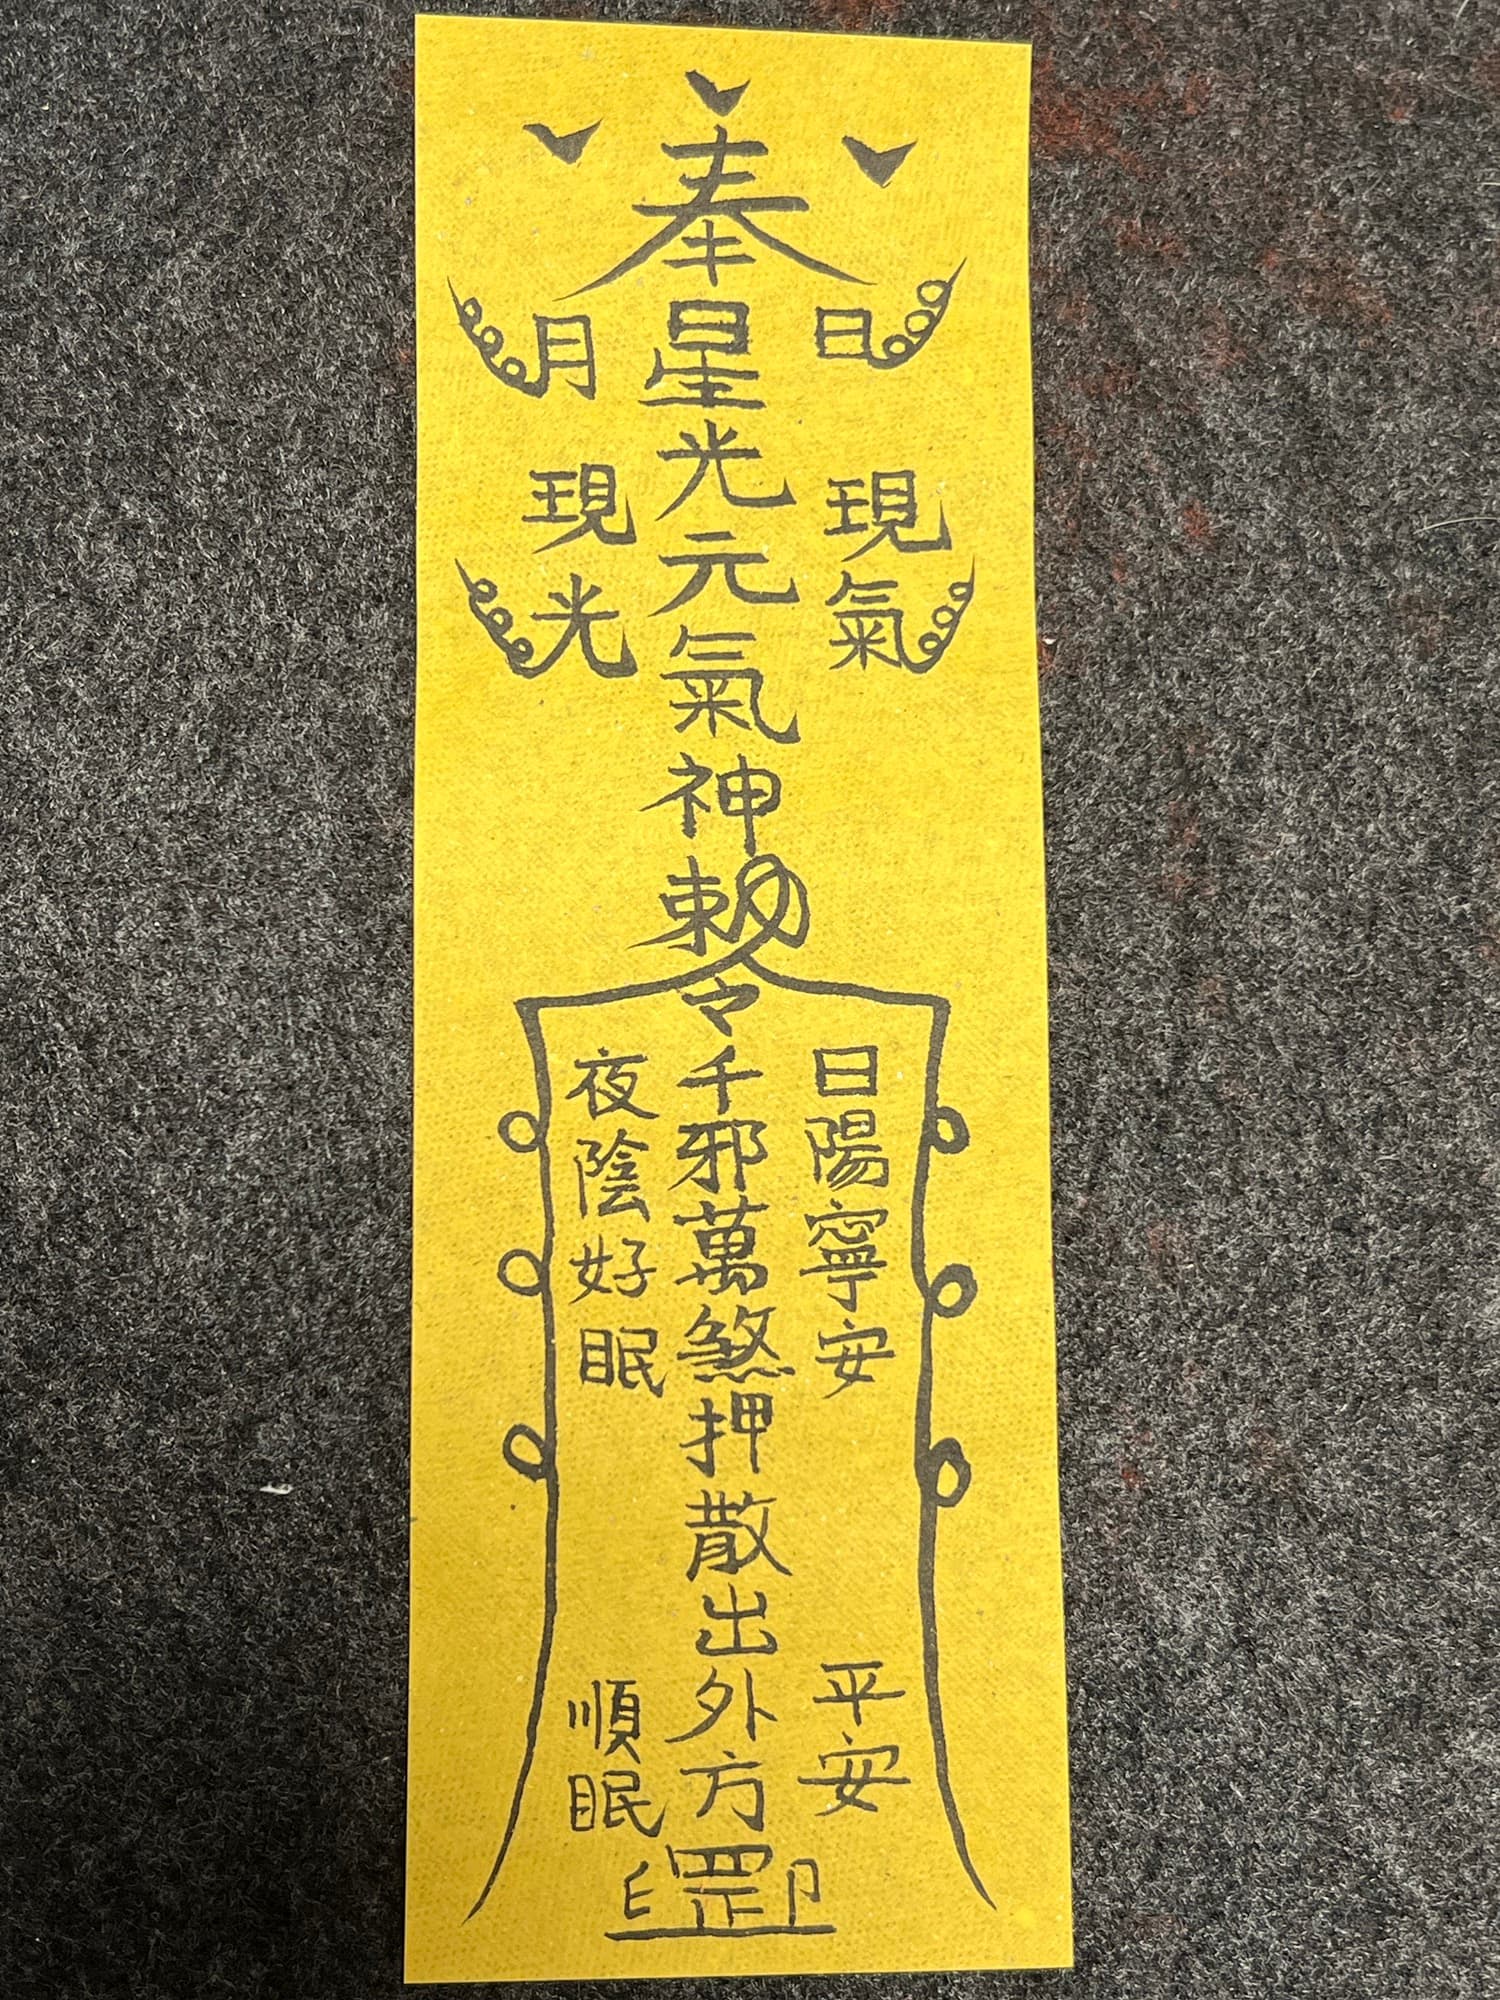 奉
日
星光元氣神勅令
月
現氣
現光
日陽寧安
千邪萬煞押散出外方
夜陰好眠
平安
順眠
罡印